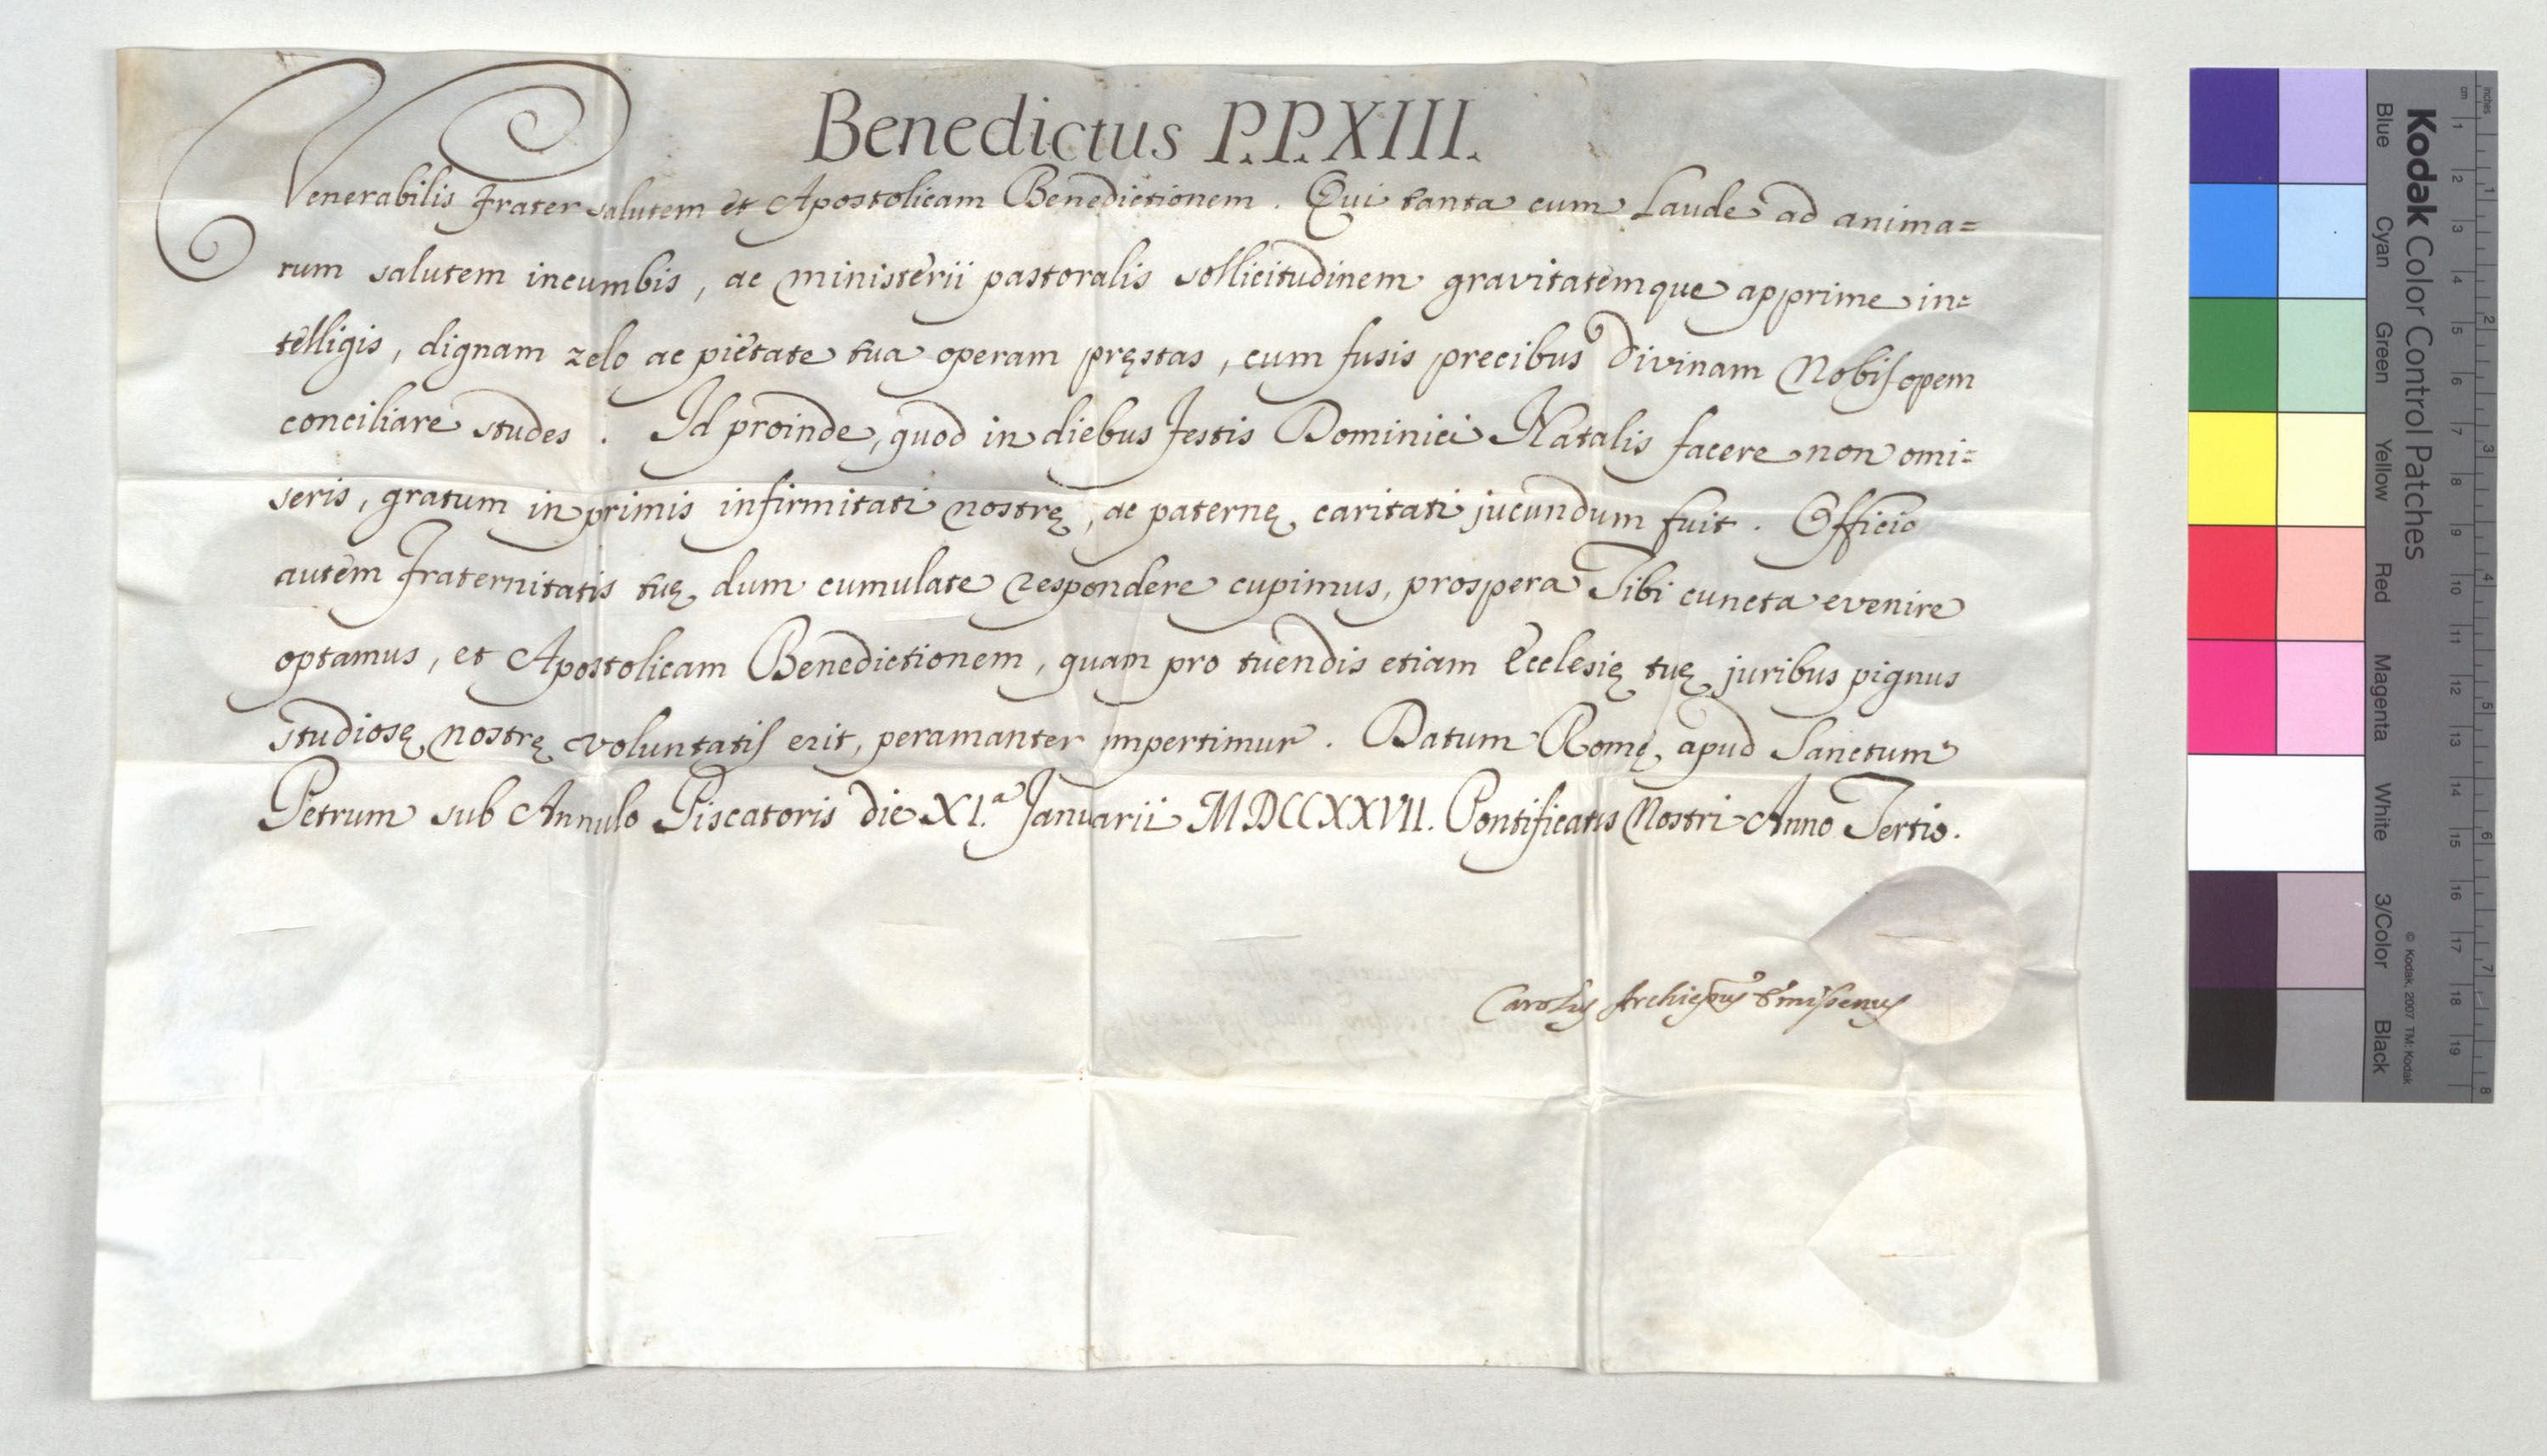 Benedictus P.P. XIII.
Venerabilis Frater salutem et Apostolicam Benedictionem. Qui tanta cum Laude ad anima=
rum salutem incumbis, ac ministerii pastoralis sollicitudinem gravitatemque apprime in=
telligis, dignam zelo ac pietate tua operam pręstas, cum fusis precibus Divinam Nobis opem
conciliare studes. Id proinde, quod in diebus Festis Dominici Natalis facere non omi=
seris, gratum in primis infirmitati nostrę, ac paternę caritati jucundum fuit. Officio
autem Fraternitatis tuę dum cumulate respondere cupimus, prospera Tibi cuncta evenire
optamus, et Apostolicam Benedictionem, quam pro tuendis etiam Ecclesię tuę juribus pignus
studiosę nostrę voluntatis erit, peramanter impertimur. Datum Romę apud Sanctum
Petrum sub Annulo Piscatoris die XI.ª Januarii MDCCXXVII. Pontificatus Nostri Anno Tertio.
Carolus Archiepus Emissenus
Kodak Color Control Patches
© Kodak, 2007 TM: Kodak
Blue Cyan Green Yellow Red Magenta White 3/Color Black
inches 1 2 3 4 5 6 7 8
cm 1 2 3 4 5 6 7 8 9 10 11 12 13 14 15 16 17 18 19